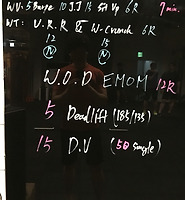 WU: 5 Burpe 10 J.J 15 sit up 6R 7 min.
WT: U.R.R & W-Crunch 6R
12 15
N N
W.O.D EMOM 12R
5 Deadlift (185/135)
15 D.U (50 single)